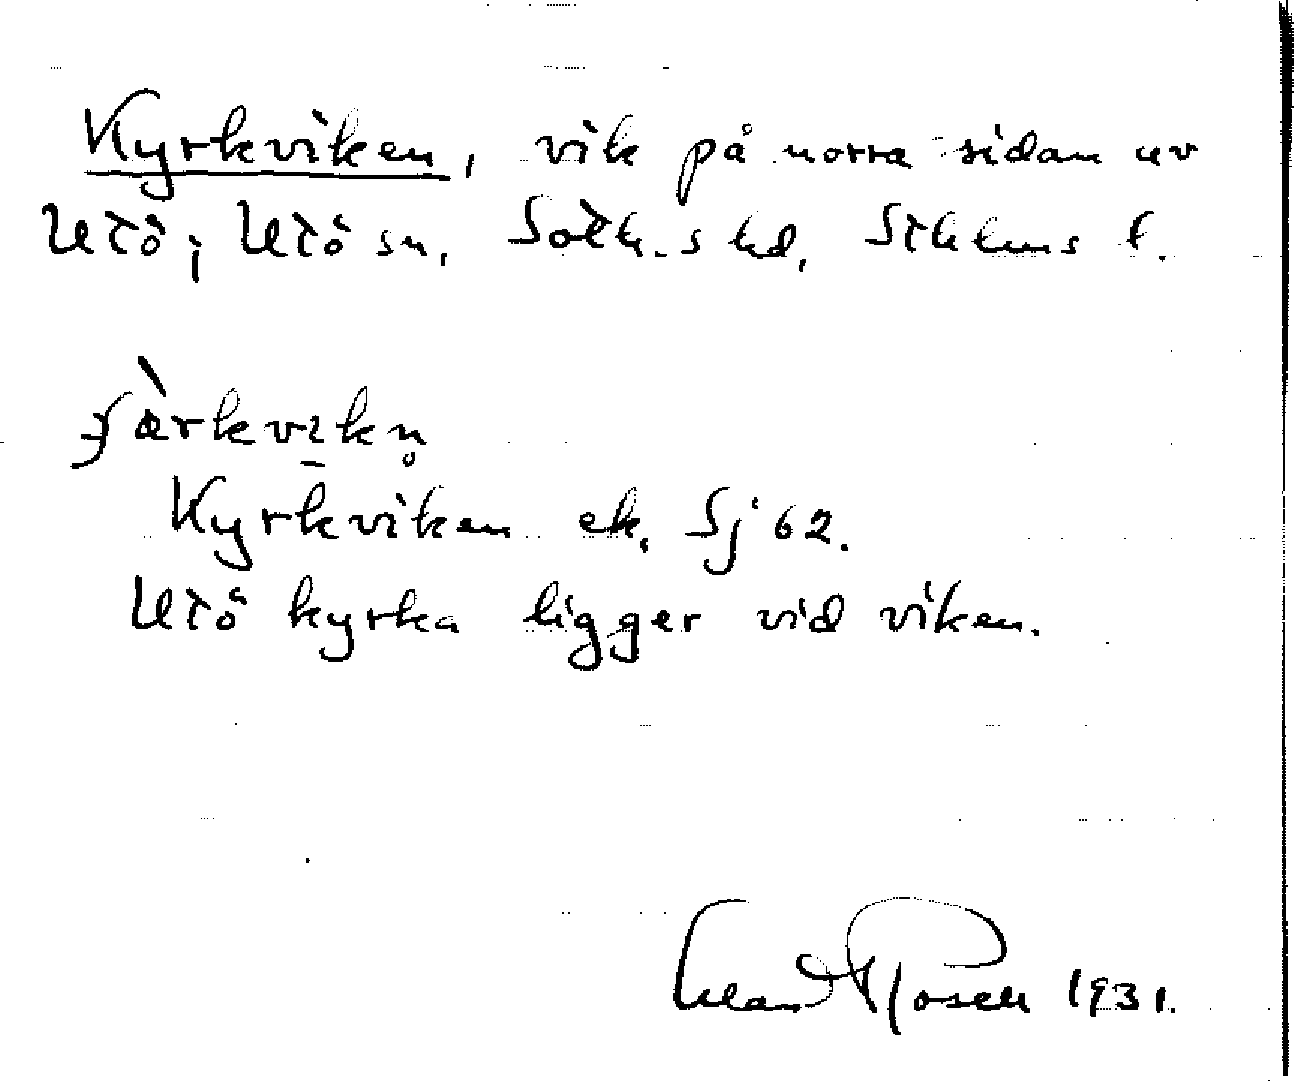 Kyrkviken, vik på norra sidan av
Utö; Utö sn, Soth.s hd, Sthlms l.
Kyrkviken ek. Sj 62.
Utö kyrka ligger vid viken.
Rosell 1931.